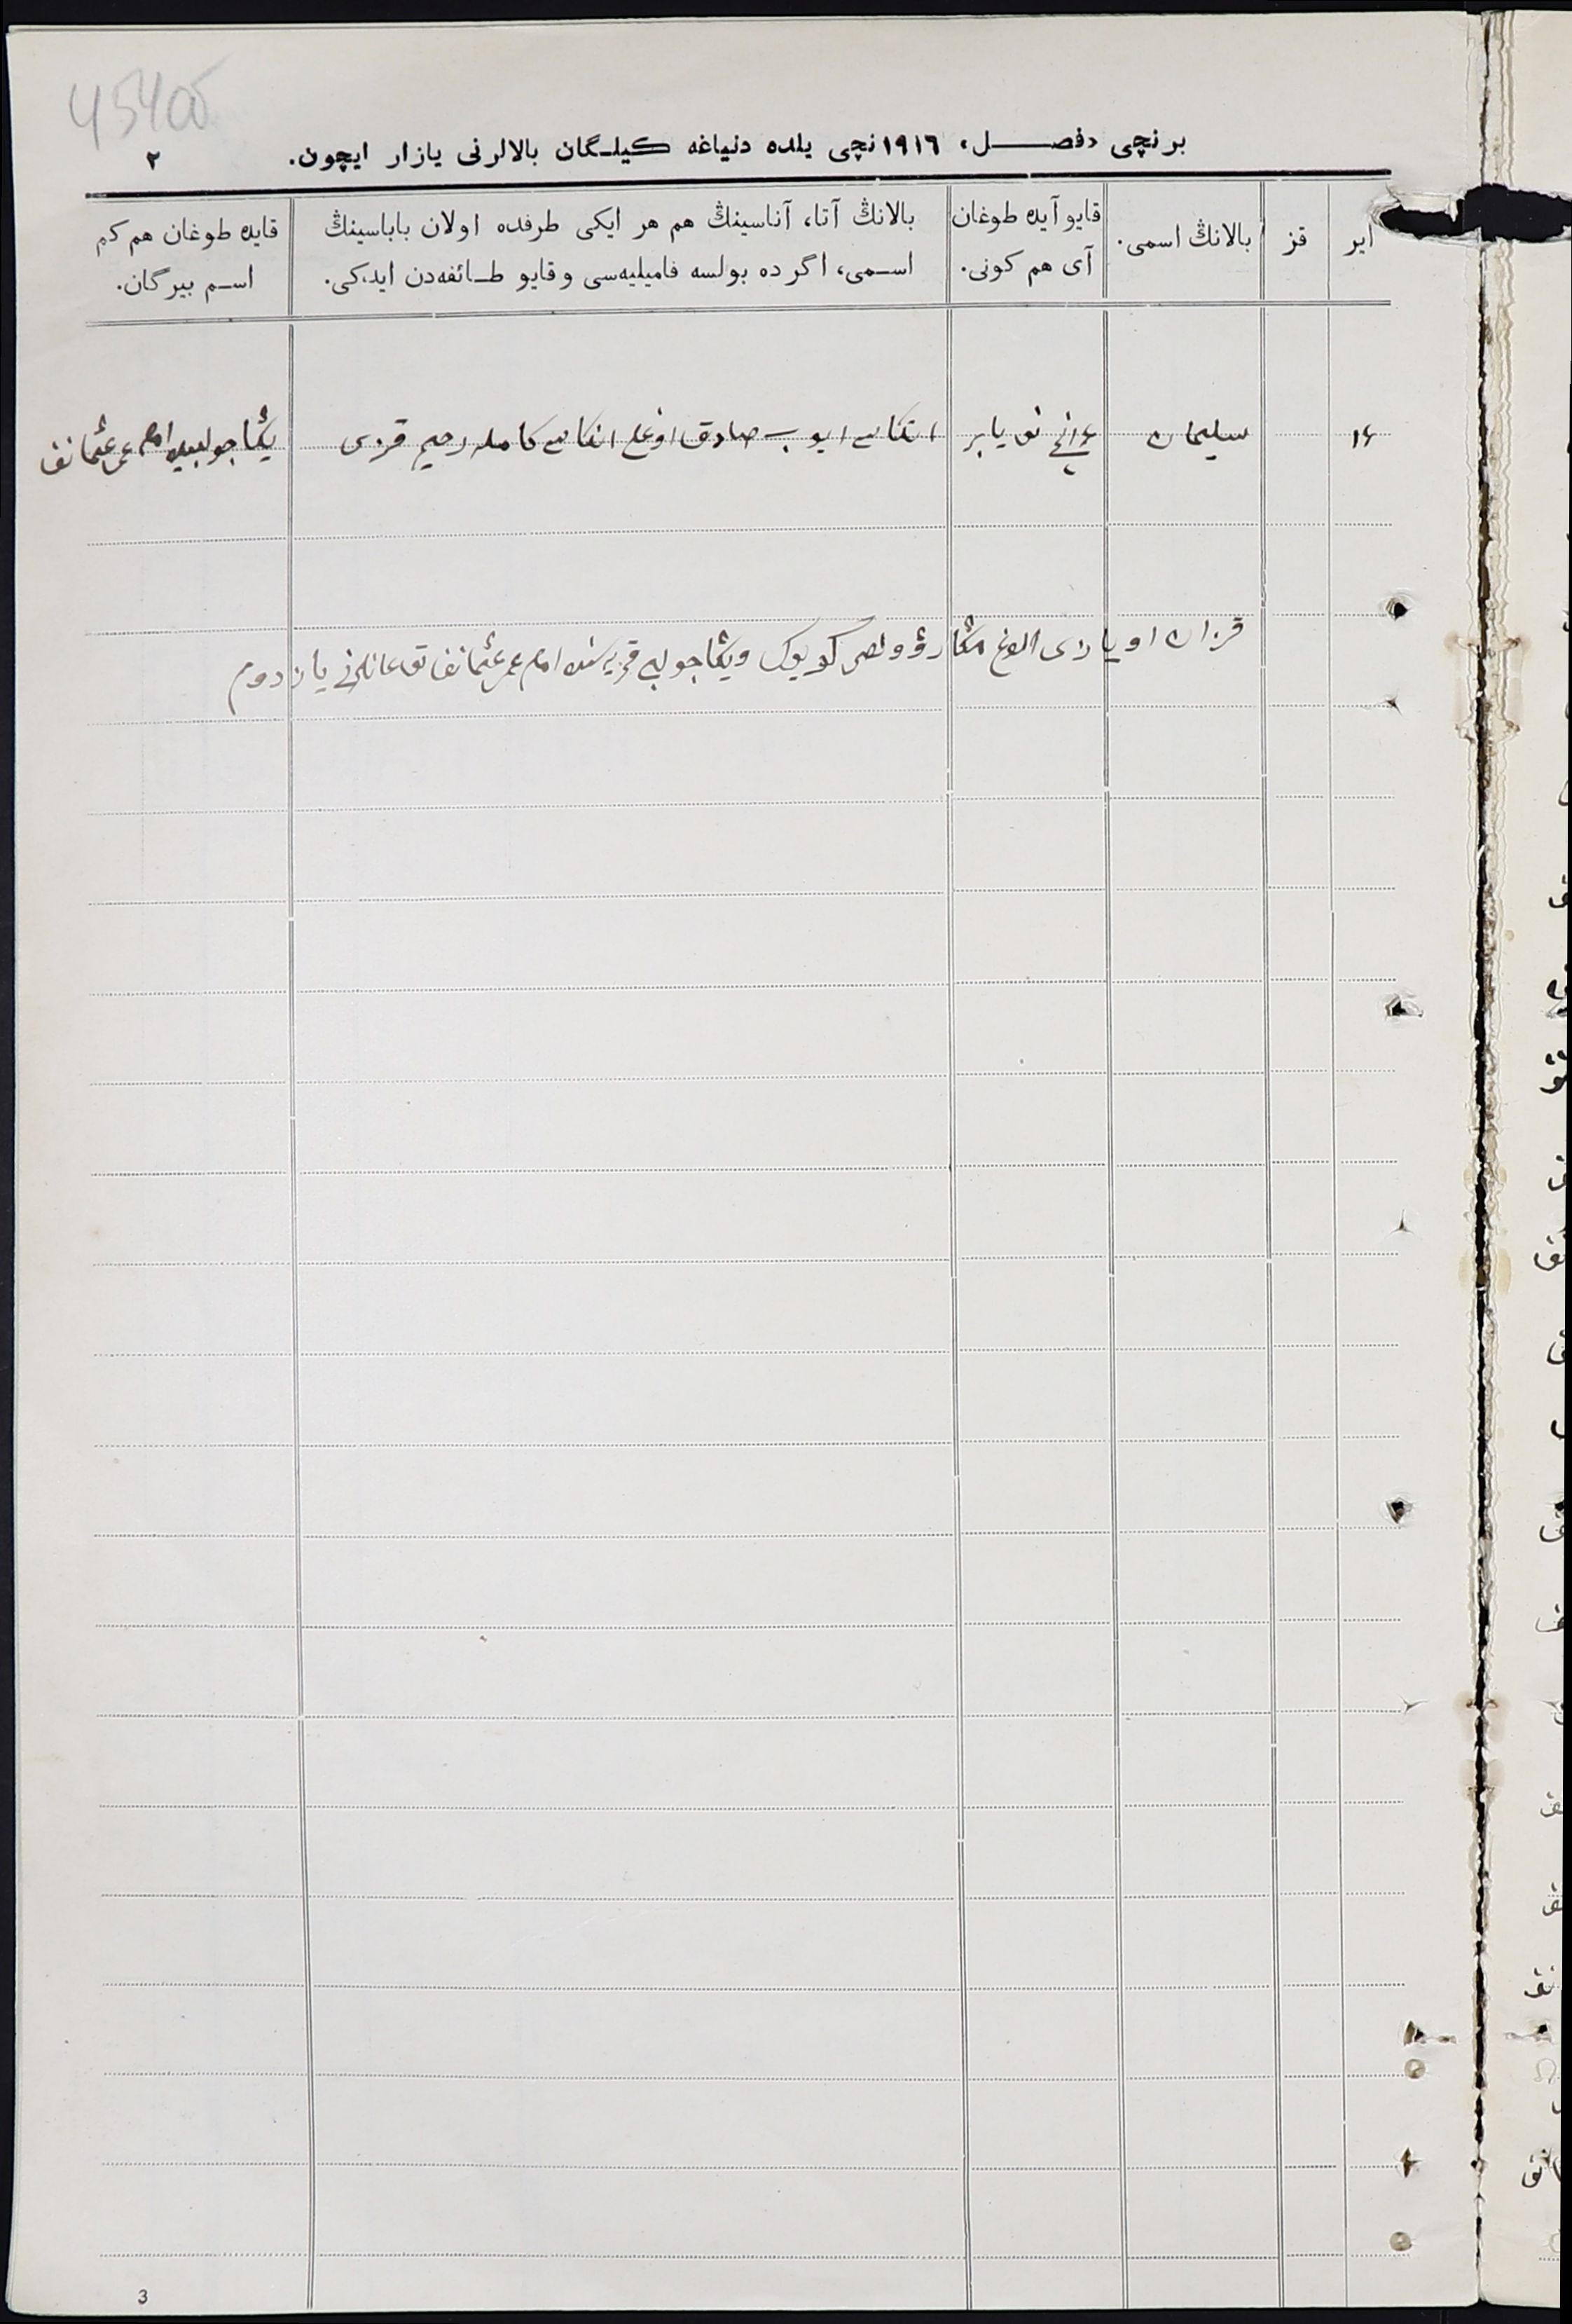 454об
برنچی «فصل» ١٩١٦نچی یلده دنیاغه کیلگان بالالرنی یازار ایچون. ٢
ایر
قز
بالانڭ اسمی.
قایو آیده طوغان
آی هم کونی.
بالانڭ آتا، آناسینڭ هم هر ایکی طرفده اولان باباسینڭ
اسمی، اگر ده بولسه فامیلیه‌سی و قایو طائفه‌دن ایدکی.
قایده طوغان هم کم
اسم بیرگان.
١٤ سلیمان نی نویابر اتکاسی ایوب صادق اوغلی انکاسی کامله رحیم قزی امام عمر عثمانف
قزان اویازی و یڭا قریه‌سنده امام عمر عثمانف یازدوم
3